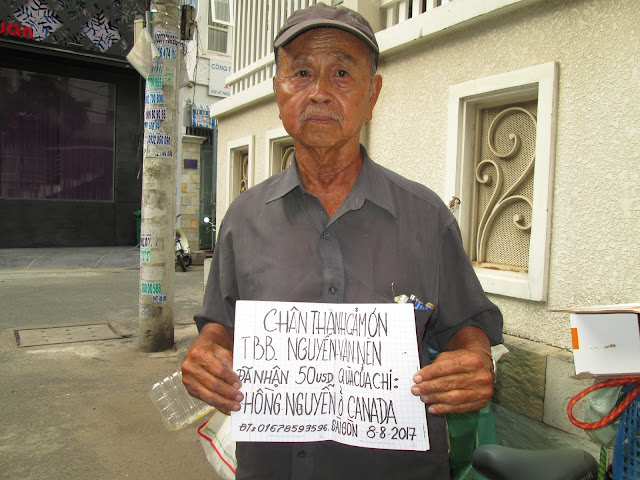 CHÂN THÀNH CẢM ƠN
TBB. NGUYỄN-VĂN-NÊN
ĐÃ NHẬN 50 USD QUÀ CỦA CHỊ:
HỒNG NGUYỄN Ở CANADA
ĐT: 01678593596. SAIGÒN 8-8-2017
CÔNG T